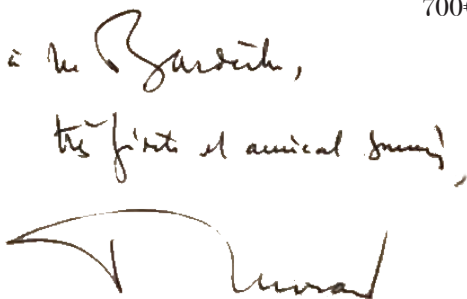 700
à M Bardèche,
très fidèle et amical souvenir,
P Morand